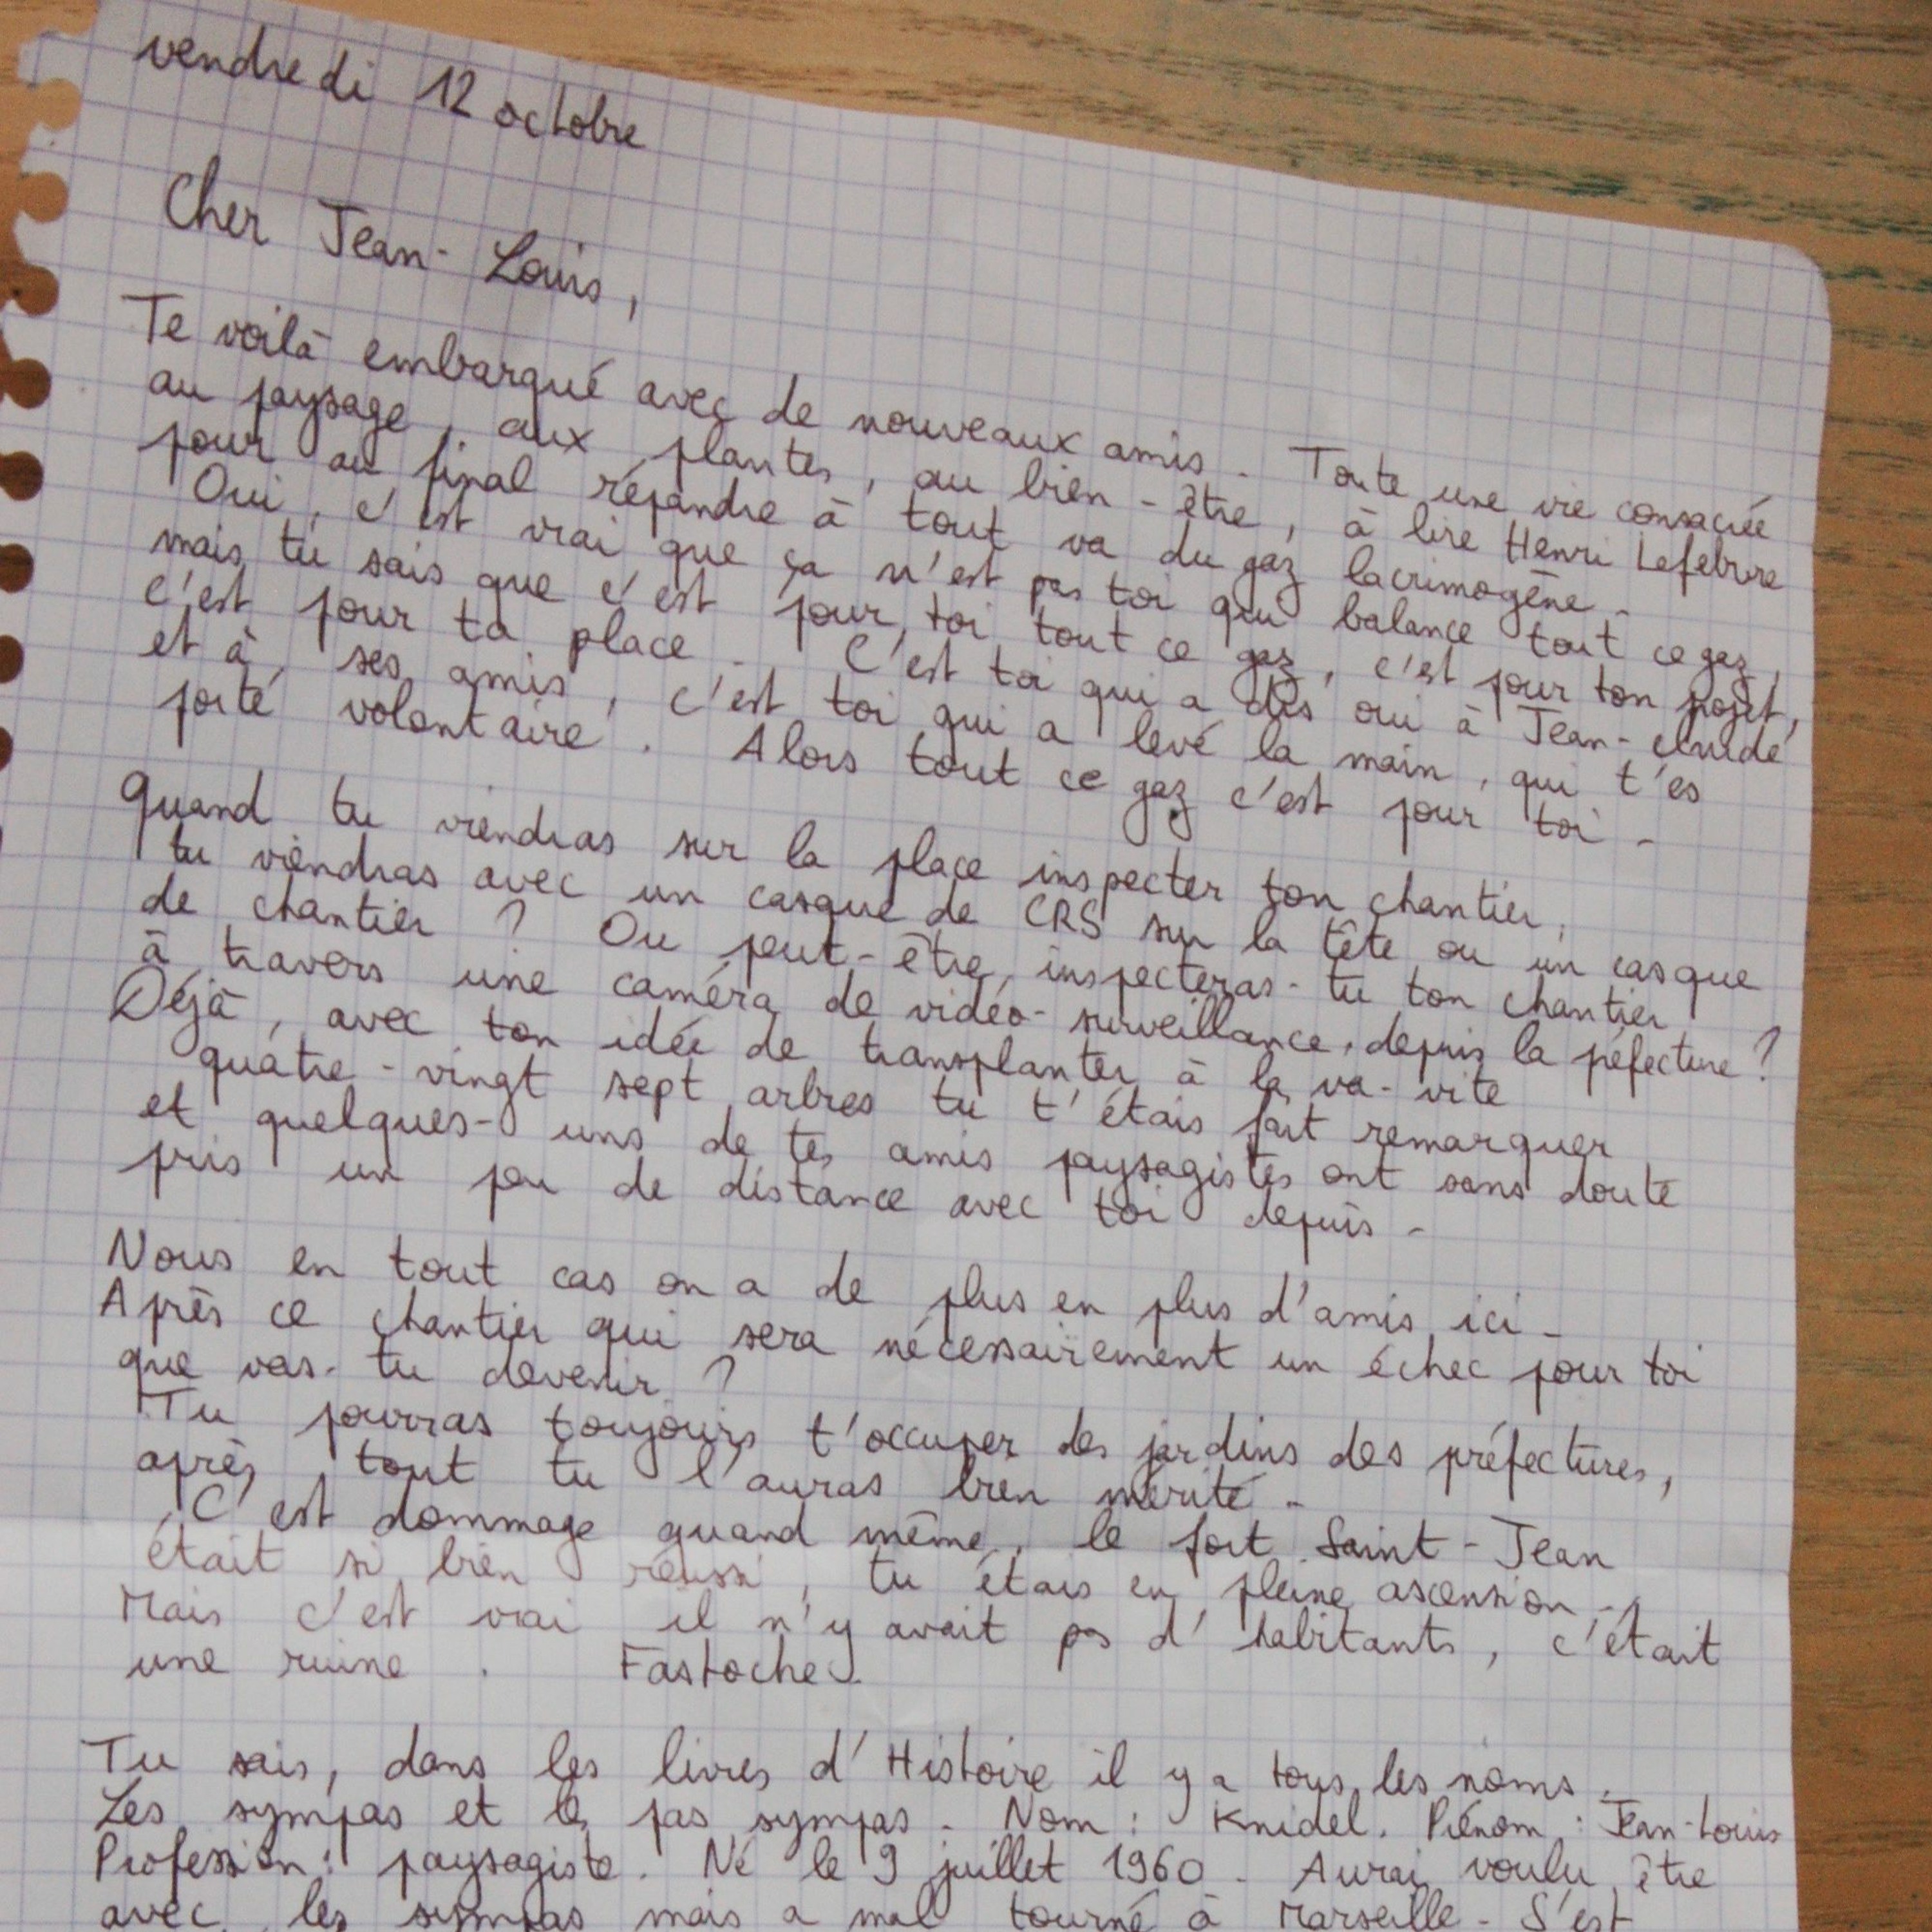 vendredi 12 octobre
Cher Jean-Louis,
Te voilà embarqué avec de nouveaux amis. Toute une vie consacrée
au paysage, aux plantes, au bien-être, à lire Henri Lefebvre
pour au final répandre à tout va du gaz lacrimogène.
Oui, c'est vrai que ça n'est pas toi qui balance tout ce gaz,
mais tu sais que c'est pour toi tout ce gaz, c'est pour ton projet,
c'est pour ta place. C'est toi qui a dis oui à Jean-Claude
et à ses amis, c'est toi qui a levé la main, qui t'es
porté volontaire. Alors tout ce gaz c'est pour toi.
Quand tu viendras sur la place inspecter ton chantier,
tu viendras avec un casque de CRS sur la tête ou un casque
de chantier ? Ou peut-être, inspecteras-tu ton chantier
à travers une caméra de vidéo-surveillance, depuis la péfecture ?
Déjà, avec ton idée de transplanter à la va-vite
quatre-vingt sept arbres tu t'étais fait remarquer
et quelques-uns de tes amis paysagistes ont sans doute
pris un peu de distance avec toi depuis.
Nous en tout cas on a de plus en plus d'amis ici.
Après ce chantier qui sera nécessairement un échec pour toi
que vas-tu devenir ?
Tu pourras toujours t'occuper des jardins des préfectures,
après tout tu l'auras bien mérité.
C'est dommage quand même, le fort Saint-Jean
était si bien réussi, tu étais en pleine ascension.
Mais c'est vrai il n'y avait pas d'habitants, c'était
une ruine. Fastoche.
Tu sais, dans les livres d'Histoire il y a tous les noms.
Les sympas et les pas sympas. Nom : Knidel. Prénom : Jean-Louis
Profession : paysagiste. Né le 9 juillet 1960. Aurai voulu être
avec les sympas mais a mal tourné à Marseille. S'est